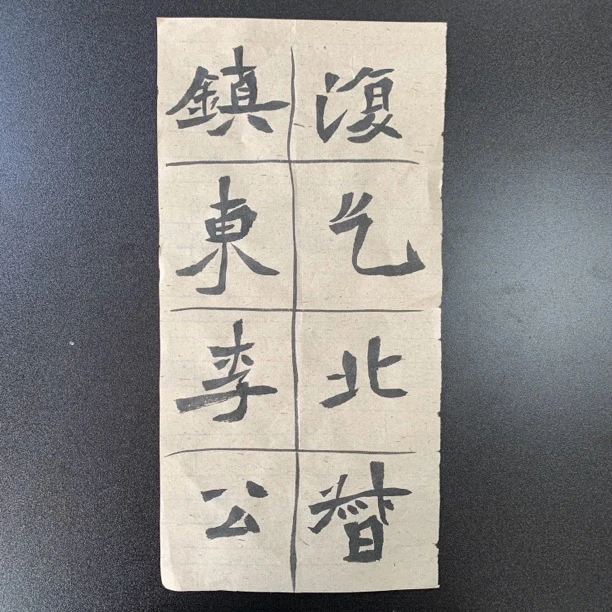 復乞北督
鎮東李公